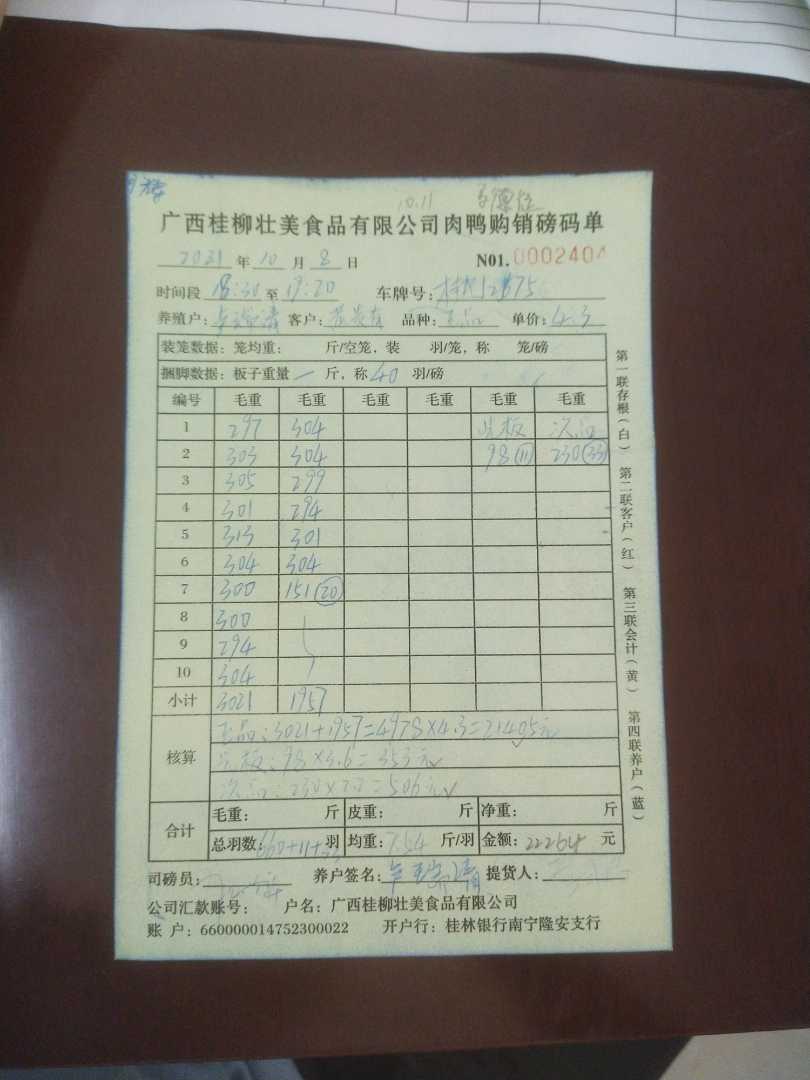 10.11
广西桂柳壮美食品有限公司肉鸭购销磅码单
2021 年 10 月 8 日 N01.0002404
时间段 18:30 至 19:20 车牌号:
养殖户: 客户: 品种: 正品 单价: 4.3
装笼数据: 笼均重: 斤/空笼, 装 羽/笼, 称 笼/磅
捆脚数据: 板子重量 斤, 称 40 羽/磅
编号 毛重 毛重 毛重 毛重 毛重 毛重
1 297 304 次品
2 303 304 98 (11) 230 (33)
3 305 299
4 301 294
5 313 301
6 304 304
7 300 151 (20)
8 300
9 294
10 304
小计 3021 1957
核算
正品: 3021+1957=4978×4.3=21405元
板: 98×3.6=353元
次品: 230×2.2=506元
合计 毛重: 斤 皮重: 斤 净重: 斤
总羽数: 660+11+33 羽 均重: 7.54 斤/羽 金额: 22264 元
司磅员: 养户签名: 提货人:
公司汇款账号: 户名: 广西桂柳壮美食品有限公司
账 户: 660000014752300022 开户行: 桂林银行南宁隆安支行
第一联存根(白) 第二联客户(红) 第三联会计(黄) 第四联养户(蓝)